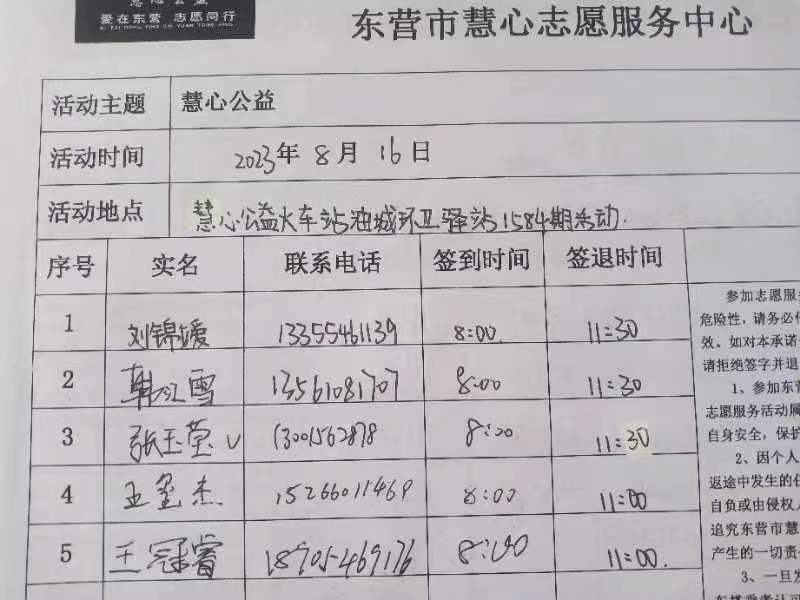 慧心公益
爱在东营 志愿同行
东营市慧心志愿服务中心
活动主题 慧心公益
活动时间 2023年 8月 16日
活动地点 慧心公益火车站油城环卫驿站1584期活动.
序号 实名 联系电话 签到时间 签退时间
1 刘锦媛 13355461139 8:00 11:30
2 韩江雪 13561081707 8:00 11:30
3 张玉莹 √ 13001562878 8:00 11:30
4 王玺杰 15266011469 8:00 11:00
5 王冠睿 18705469176 8:00 11:00.
参加志愿服
危险性，请务必
效。如对本承诺
请拒绝签字并退
1、参加东营
志愿服务活动属
自身安全，保护
2、因个人
返途中发生的任
自负或由侵权人
追究东营市慧
产生的一切责
3、一旦发